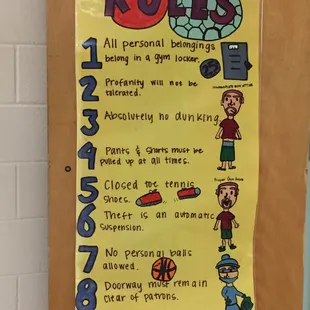 RULES
1 All personal belongings
belong in a gym locker.
2 Profanity will not be
tolerated.
3 Absolutely no dunking
4 Pants & Shorts must be
pulled up at all times.
5 Closed toe tennis
shoes.
6 Theft is an automatic
suspension.
7 No personal balls
allowed.
8 Doorway must remain
clear of patrons.